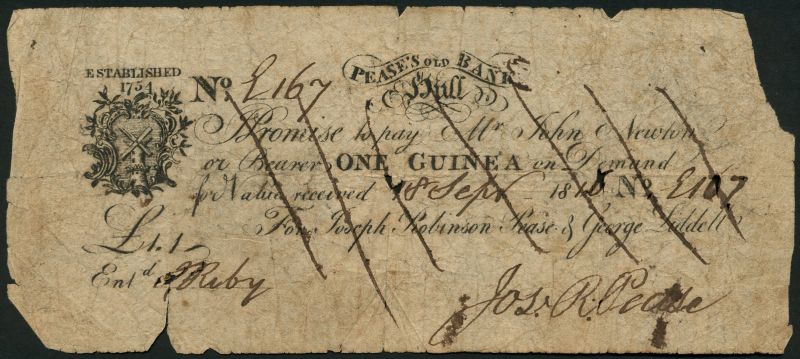 ESTABLISHED
1754
PEASE'S OLD BANK
Hull
No E167
I Promise to pay Mr. John Newton
or Bearer ONE GUINEA on Demand
for Value received 18 Sept 181 No. E167
For Joseph Robinson Pease & George Liddell
£1.1-
Entd. Ruby
Jos. R. Pease